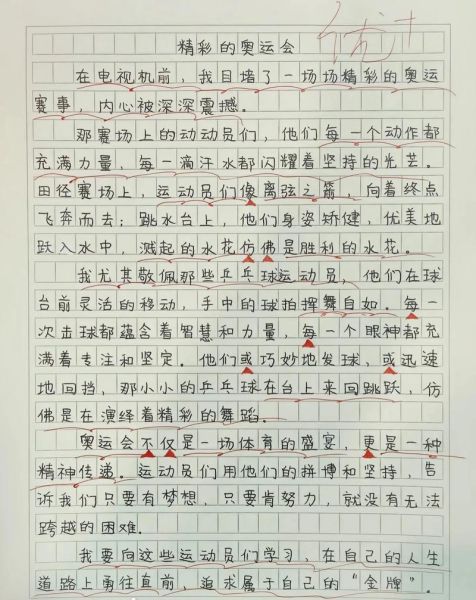 精彩的奥运会
优+
在电视机前，我目堵了一场场精彩的奥运
赛事，内心被深深震撼。
那赛场上的动动员们，他们每一个动作都
充满力量，每一滴汗水都闪耀着坚持的光芒。
田径赛场上，运动员们像离弦之箭，向着终点
飞奔而去；跳水台上，他们身姿矫健，优美地
跃入水中，溅起的水花仿佛是胜利的水花。
我尤其敬佩那些乒乓球运动员，他们在球
台前灵活的移动，手中的球拍挥舞自如。每一
次击球都蕴含着智慧和力量，每一个眼神都充
满着专注和坚定。他们或巧妙地发球，或迅速
地回挡，那小小的乒乓球在台上来回跳跃，仿
佛是在演绎着精彩的舞蹈。
奥运会不仅是一场体育的盛宴，更是一种
精神传递。运动员们用他们的拼博和坚持，告
诉我们只要有梦想，只要肯努力，就没有无法
跨越的困难.
我要向这些运动员们学习，在自己的人生
道路上勇往直前，追求属于自己的“金牌”。